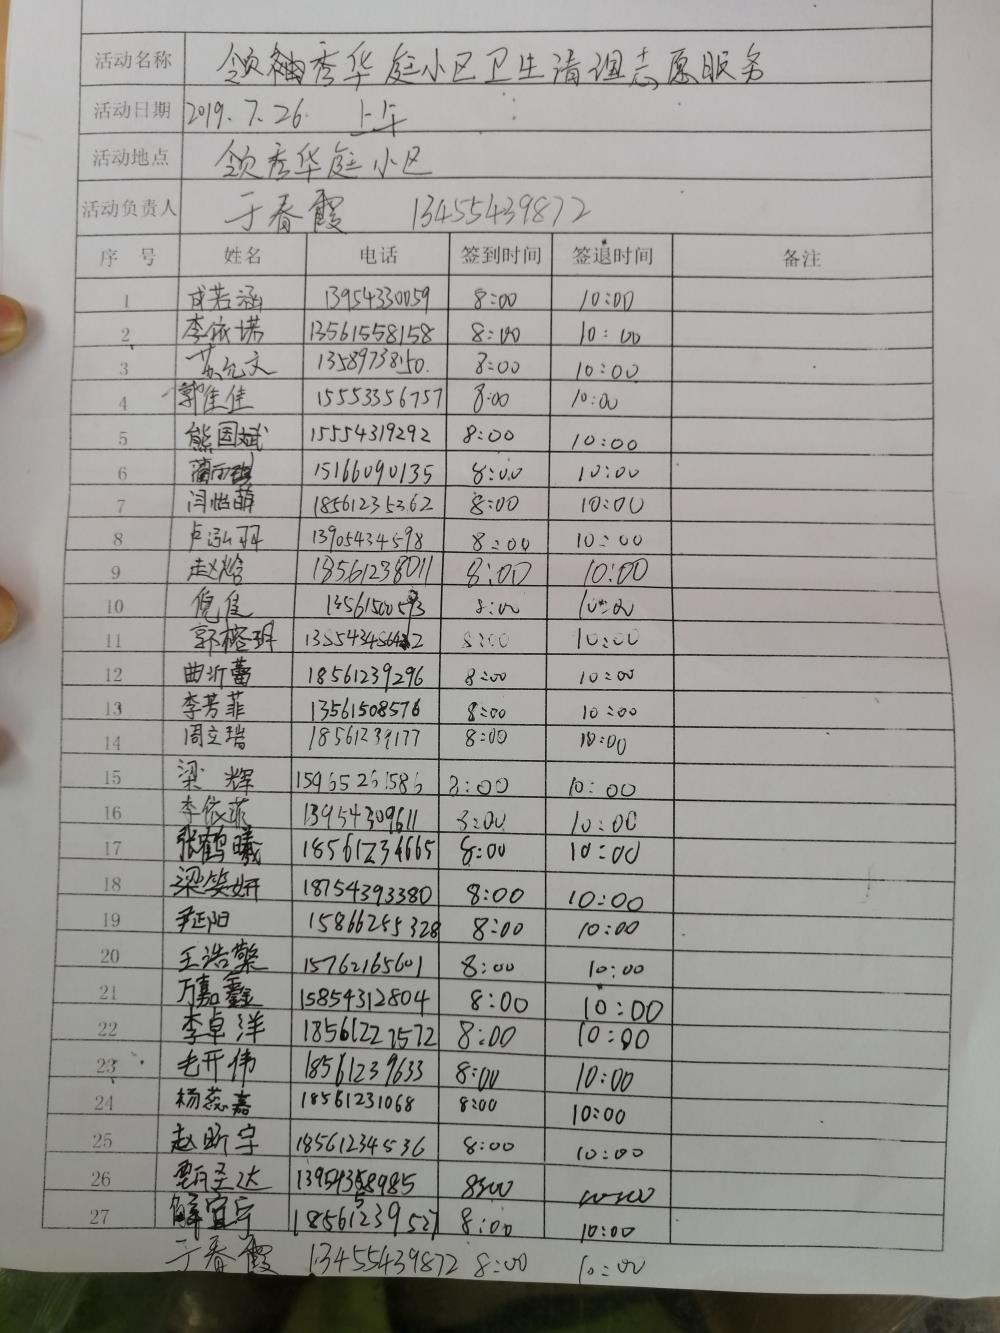 活动名称 领袖秀华庭小区卫生清理志愿服务
活动日期 2019.7.26. 上午
活动地点 领秀华庭小区
活动负责人 于春霞 13455439872
序号 姓名 电话 签到时间 签退时间 备注
1 成若涵 13954330059 8:00 10:00
2 李依诺 13561558158 8:00 10:00
3 苏允文 13589738150. 8:00 10:00
4 郭佳佳 15553356757 8:00 10:00
5 熊国斌 15554319292 8:00 10:00
6 15166090135 8:00 10:00
7 闫怡萌 18561235362 8:00 10:00
8 卢泓羽 13905434598 8:00 10:00
9 赵焓 18561238011 8:00 10:00
10 倪佳 8:00 10:00
11 郭榕玥 8:00 10:00
12 曲沂蕾 18561239296 8:00 10:00
13 李芳菲 13561508576 8:00 10:00
14 周立瑞 18561239177 8:00 10:00
15 梁辉 15965261586 8:00 10:00
16 李依菲 13954309611 8:00 10:00
17 张鹤曦 18561234665 8:00 10:00
18 梁笑妍 18754393380 8:00 10:00
19 尹延阳 15866255328 8:00 10:00
20 王浩擎 15762165601 8:00 10:00
21 万嘉鑫 15854312804 8:00 10:00
22 李卓洋 18561227572 8:00 10:00
23 毛开伟 18561239633 8:00 10:00
24 杨蕊嘉 18561231068 8:00 10:00
25 赵昕宇 18561234536 8:00 10:00
26 甄圣达 8:00 10:00
27 解宜宁 18561239527 8:00 10:00
于春霞 13455439872 8:00 10:00